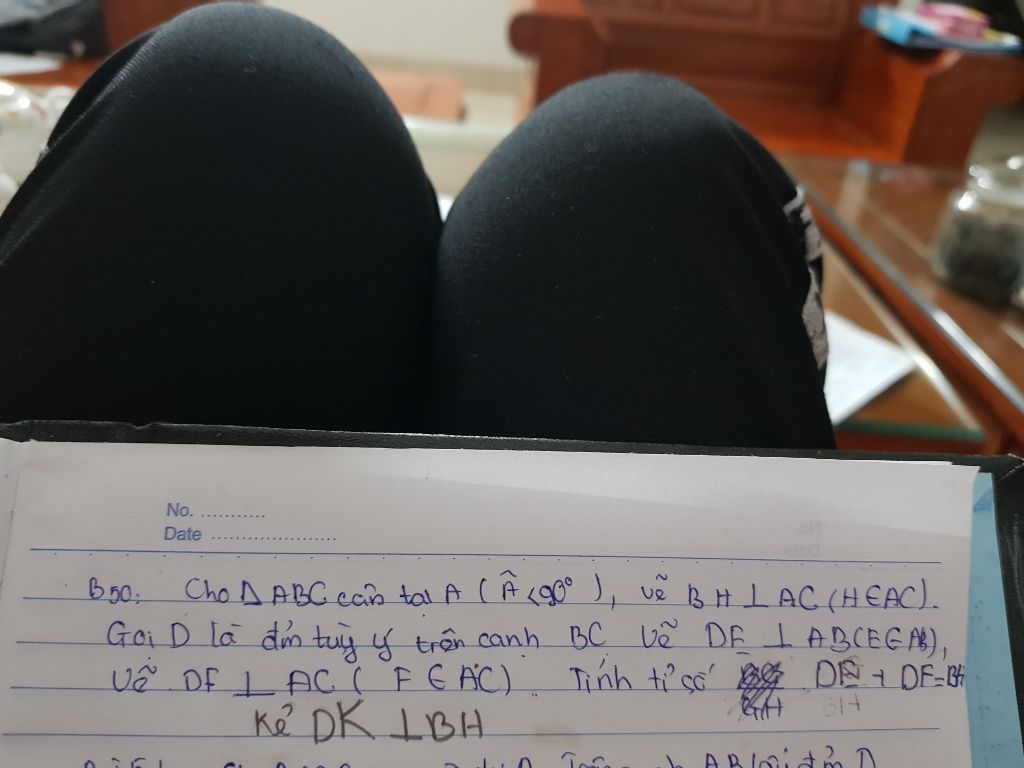 No. ...........
Date ......................
B50: Cho Δ ABC cân tại A ( Â < 90° ), vẽ BH ⊥ AC (H ∈ AC).
Gọi D là đ'm tuỳ ý trên cạnh BC vẽ DE ⊥ AB (E ∈ AB),
Vẽ DF ⊥ AC ( F ∈ AC ). Tính tỉ số DE + DF = BH
BH
Kẻ DK ⊥ BH